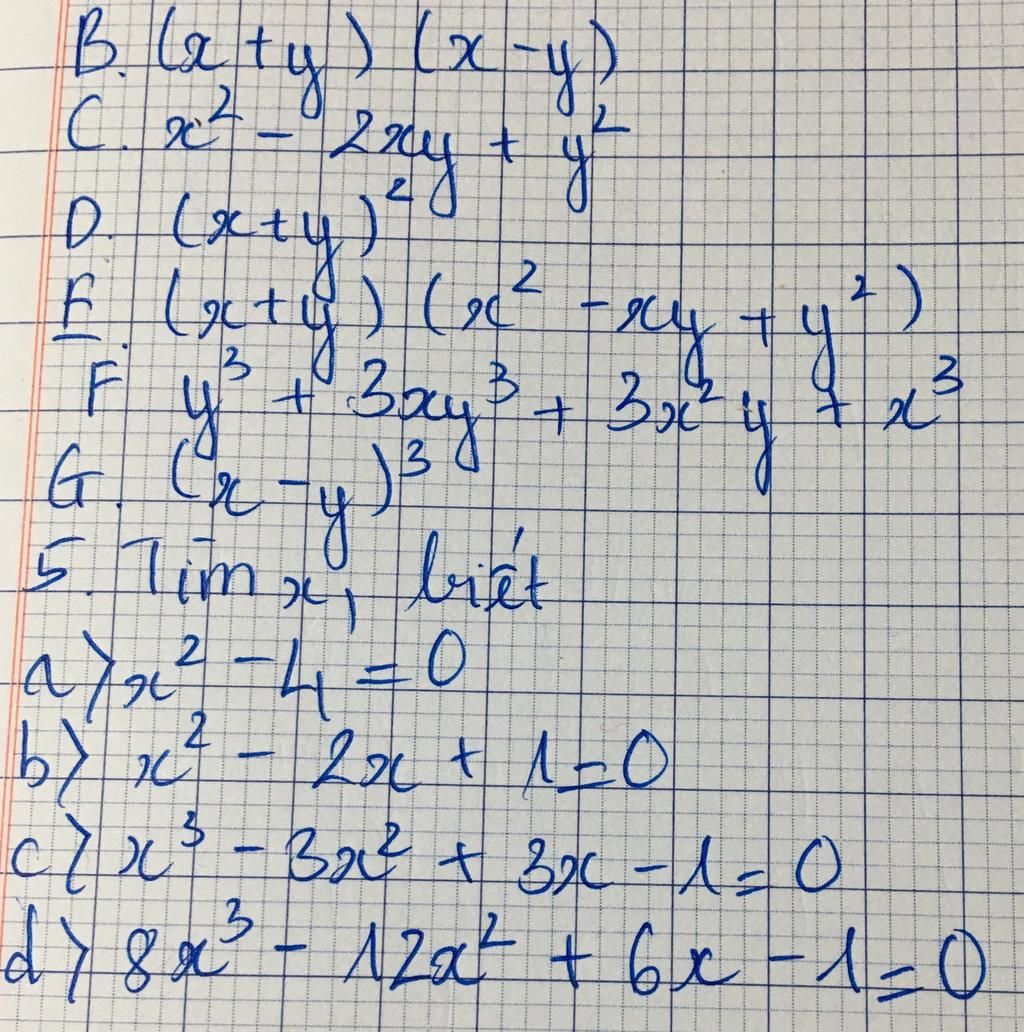 B. (x + y) (x - y)
C. x² - 2xy + y²
D. (x+y)²
E. (x+y) (x² - xy + y²)
F y³ + 3xy³ + 3x²y + x³
G. (x - y)³
5. Tìm x, biết
a> x² - 4 = 0
b> x² - 2x + 1 = 0
c> x³ - 3x² + 3x - 1 = 0
d> 8x³ - 12x² + 6x - 1 = 0